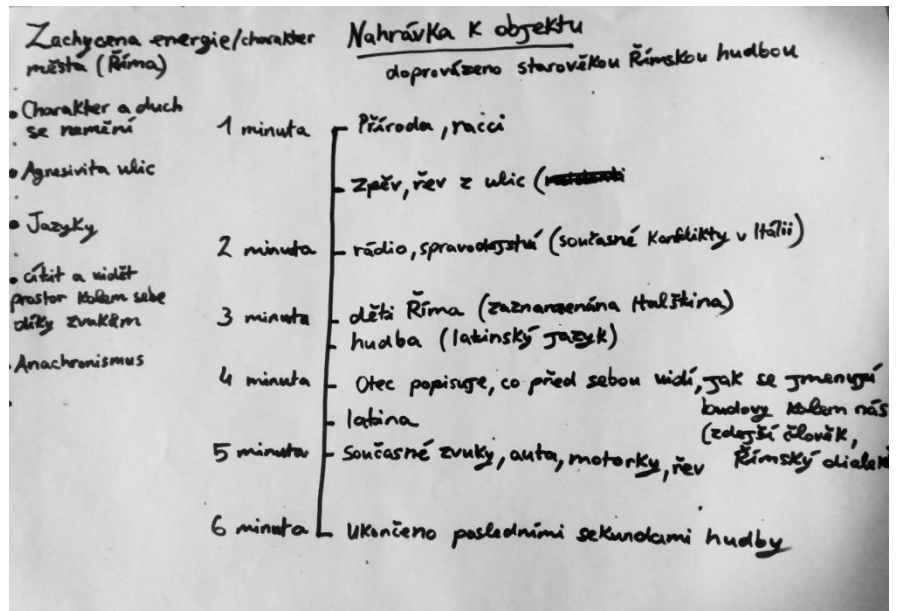 Zachycena energie/charakter
města (Říma)
• Charakter a duch
se nemění
• Agresivita ulic
• Jazyky
• cítit a vidět
prostor kolem sebe
díky zvukům
• Anachronismus
•
Nahrávka k objektu
doprovázeno starověkou Římskou hudbou
1 minuta - Příroda, racci
- Zpěv, řev z ulic (
2 minuta - rádio, spravodajství (současné konflikty v Itálii)
3 minuta - děti Říma (zaznamenána Italština)
- hudba (latinský jazyk)
4 minuta - Otec popisuje, co před sebou vidí, jak se jmenují
budovy kolem nás
(zdejší člověk,
Římský dialekt
- latina
5 minuta - Současné zvuky, auta, motorky, řev
6 minuta - Ukončeno posledními sekundami hudby